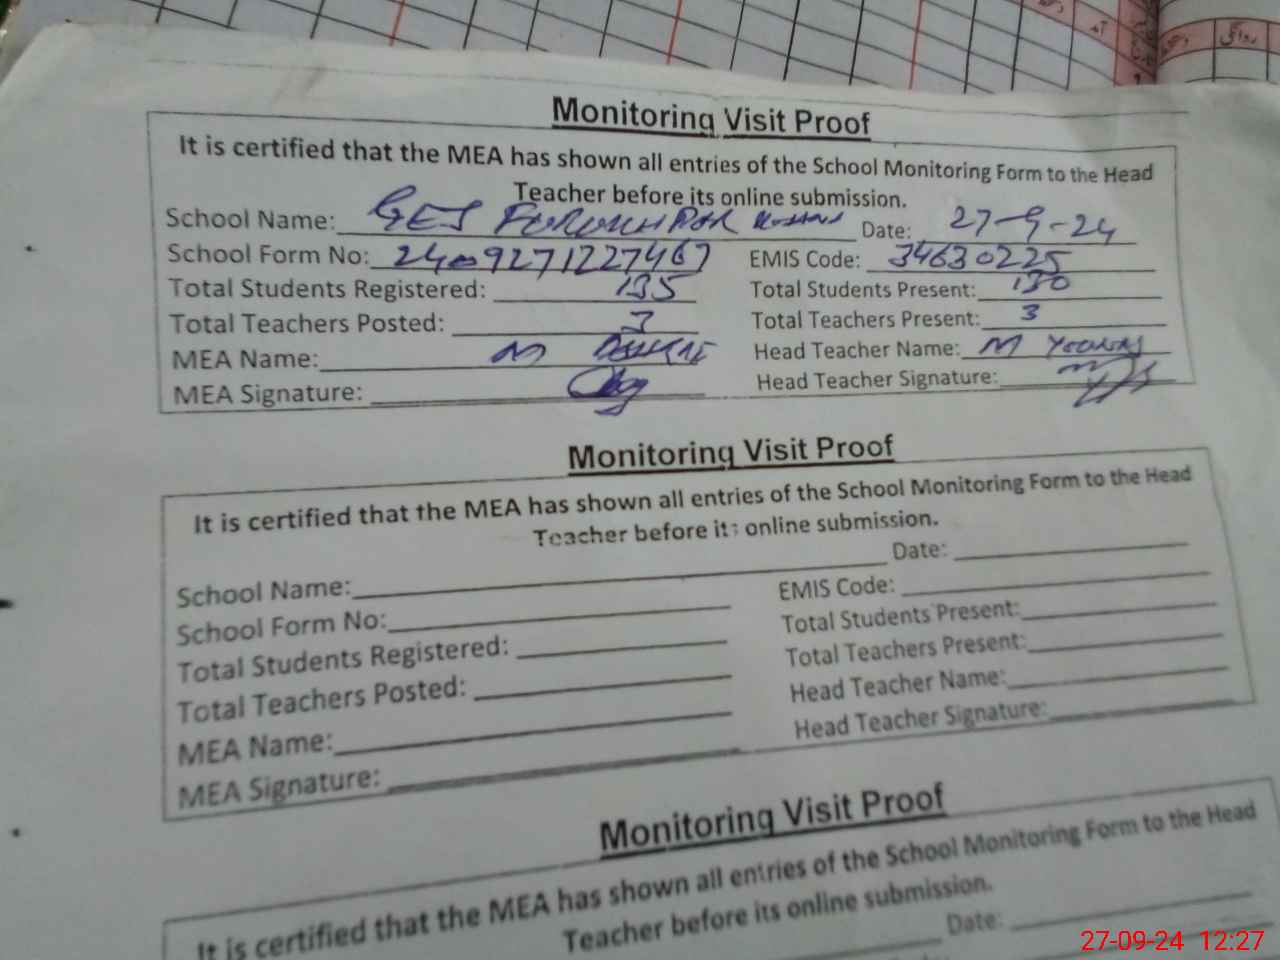 روانگی
آمد
Monitoring Visit Proof
It is certified that the MEA has shown all entries of the School Monitoring Form to the Head
Teacher before its online submission.
School Name: GES Date: 27-9-24
School Form No: 2409271227467 EMIS Code: 34630225
Total Students Registered: 135 Total Students Present: 130
Total Teachers Posted: 3 Total Teachers Present: 3
MEA Name: M Head Teacher Name: M Younas
MEA Signature: Head Teacher Signature:
Monitoring Visit Proof
It is certified that the MEA has shown all entries of the School Monitoring Form to the Head
Teacher before its online submission.
School Name: Date:
School Form No: EMIS Code:
Total Students Registered: Total Students Present:
Total Teachers Posted: Total Teachers Present:
MEA Name: Head Teacher Name:
MEA Signature: Head Teacher Signature:
Monitoring Visit Proof
It is certified that the MEA has shown all entries of the School Monitoring Form to the Head
Teacher before its online submission.
Date:
27-09-24 12:27